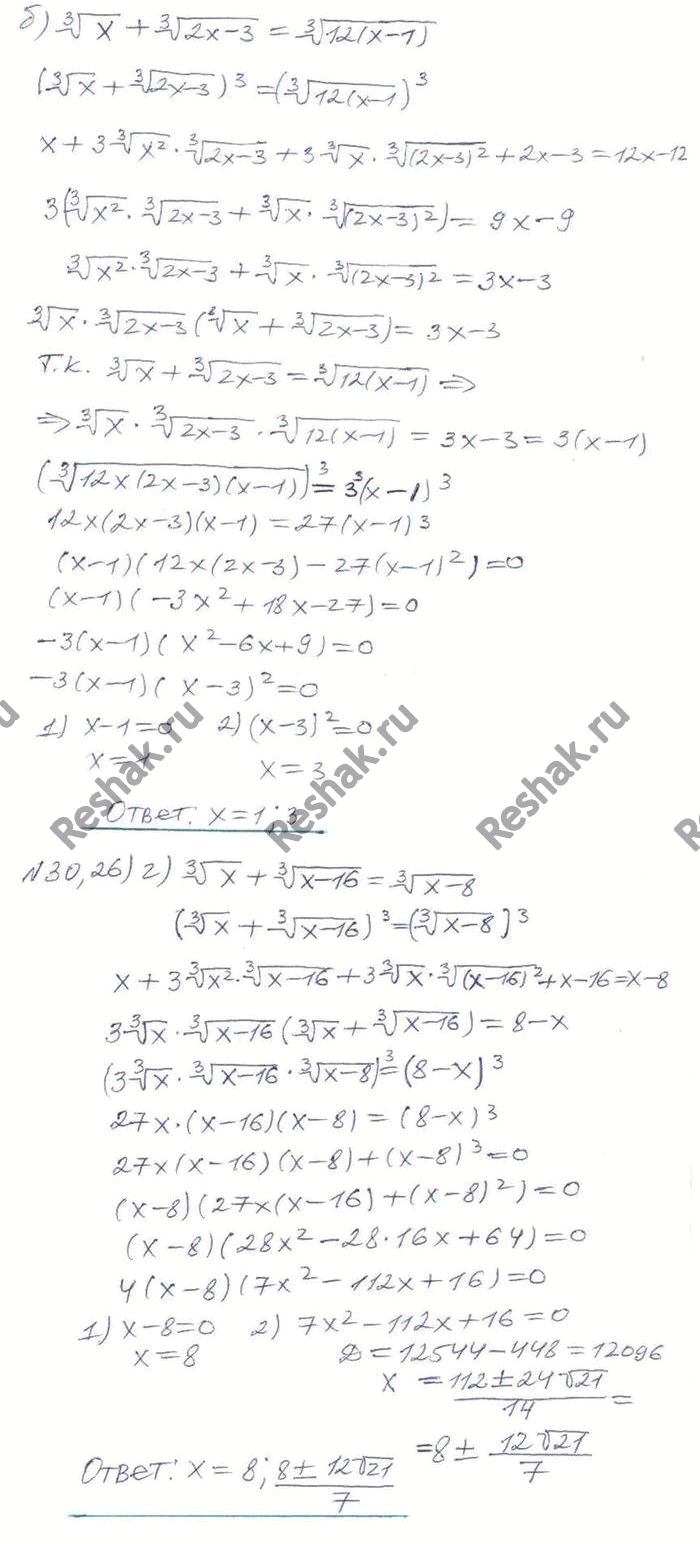 б) ∛x + ∛(2x-3) = ∛(12(x-1))
(∛x + ∛(2x-3))³ = (∛(12(x-1)))³
x + 3∛x² · ∛(2x-3) + 3·∛x · ∛((2x-3)²) + 2x-3 = 12x-12
3(∛x² · ∛(2x-3) + ∛x · ∛((2x-3)²)) = 9x-9
∛x² · ∛(2x-3) + ∛x · ∛((2x-3)²) = 3x-3
∛x · ∛(2x-3) (∛x + ∛(2x-3)) = 3x-3
Т.к. ∛x + ∛(2x-3) = ∛(12(x-1)) ⇒
⇒ ∛x · ∛(2x-3) · ∛(12(x-1)) = 3x-3 = 3(x-1)
(∛(12x(2x-3)(x-1)))³ = 3³(x-1)³
12x(2x-3)(x-1) = 27(x-1)³
(x-1)(12x(2x-3) - 27(x-1)²) = 0
(x-1)(-3x² + 18x-27) = 0
-3(x-1)(x²-6x+9) = 0
-3(x-1)(x-3)² = 0
1) x-1=0 2) (x-3)²=0
x=1 x=3
Ответ: x=1; 3
Reshak.ru
Reshak.ru
Reshak.ru
№30,26) г) ∛x + ∛(x-16) = ∛(x-8)
(∛x + ∛(x-16))³ = (∛(x-8))³
x + 3∛x² · ∛(x-16) + 3∛x · ∛((x-16)²) + x-16 = x-8
3∛x · ∛(x-16) (∛x + ∛(x-16)) = 8-x
(3∛x · ∛(x-16) · ∛(x-8))³ = (8-x)³
27x·(x-16)(x-8) = (8-x)³
27x(x-16)(x-8) + (x-8)³ = 0
(x-8)(27x(x-16) + (x-8)²) = 0
(x-8)(28x² - 28·16x + 64) = 0
4(x-8)(7x² - 112x + 16) = 0
1) x-8=0 2) 7x²-112x+16=0
x=8 D=12544-448=12096
x = (112±24√21)/14 =
= 8 ± 12√21/7
Ответ: x = 8; (8±12√21)/7